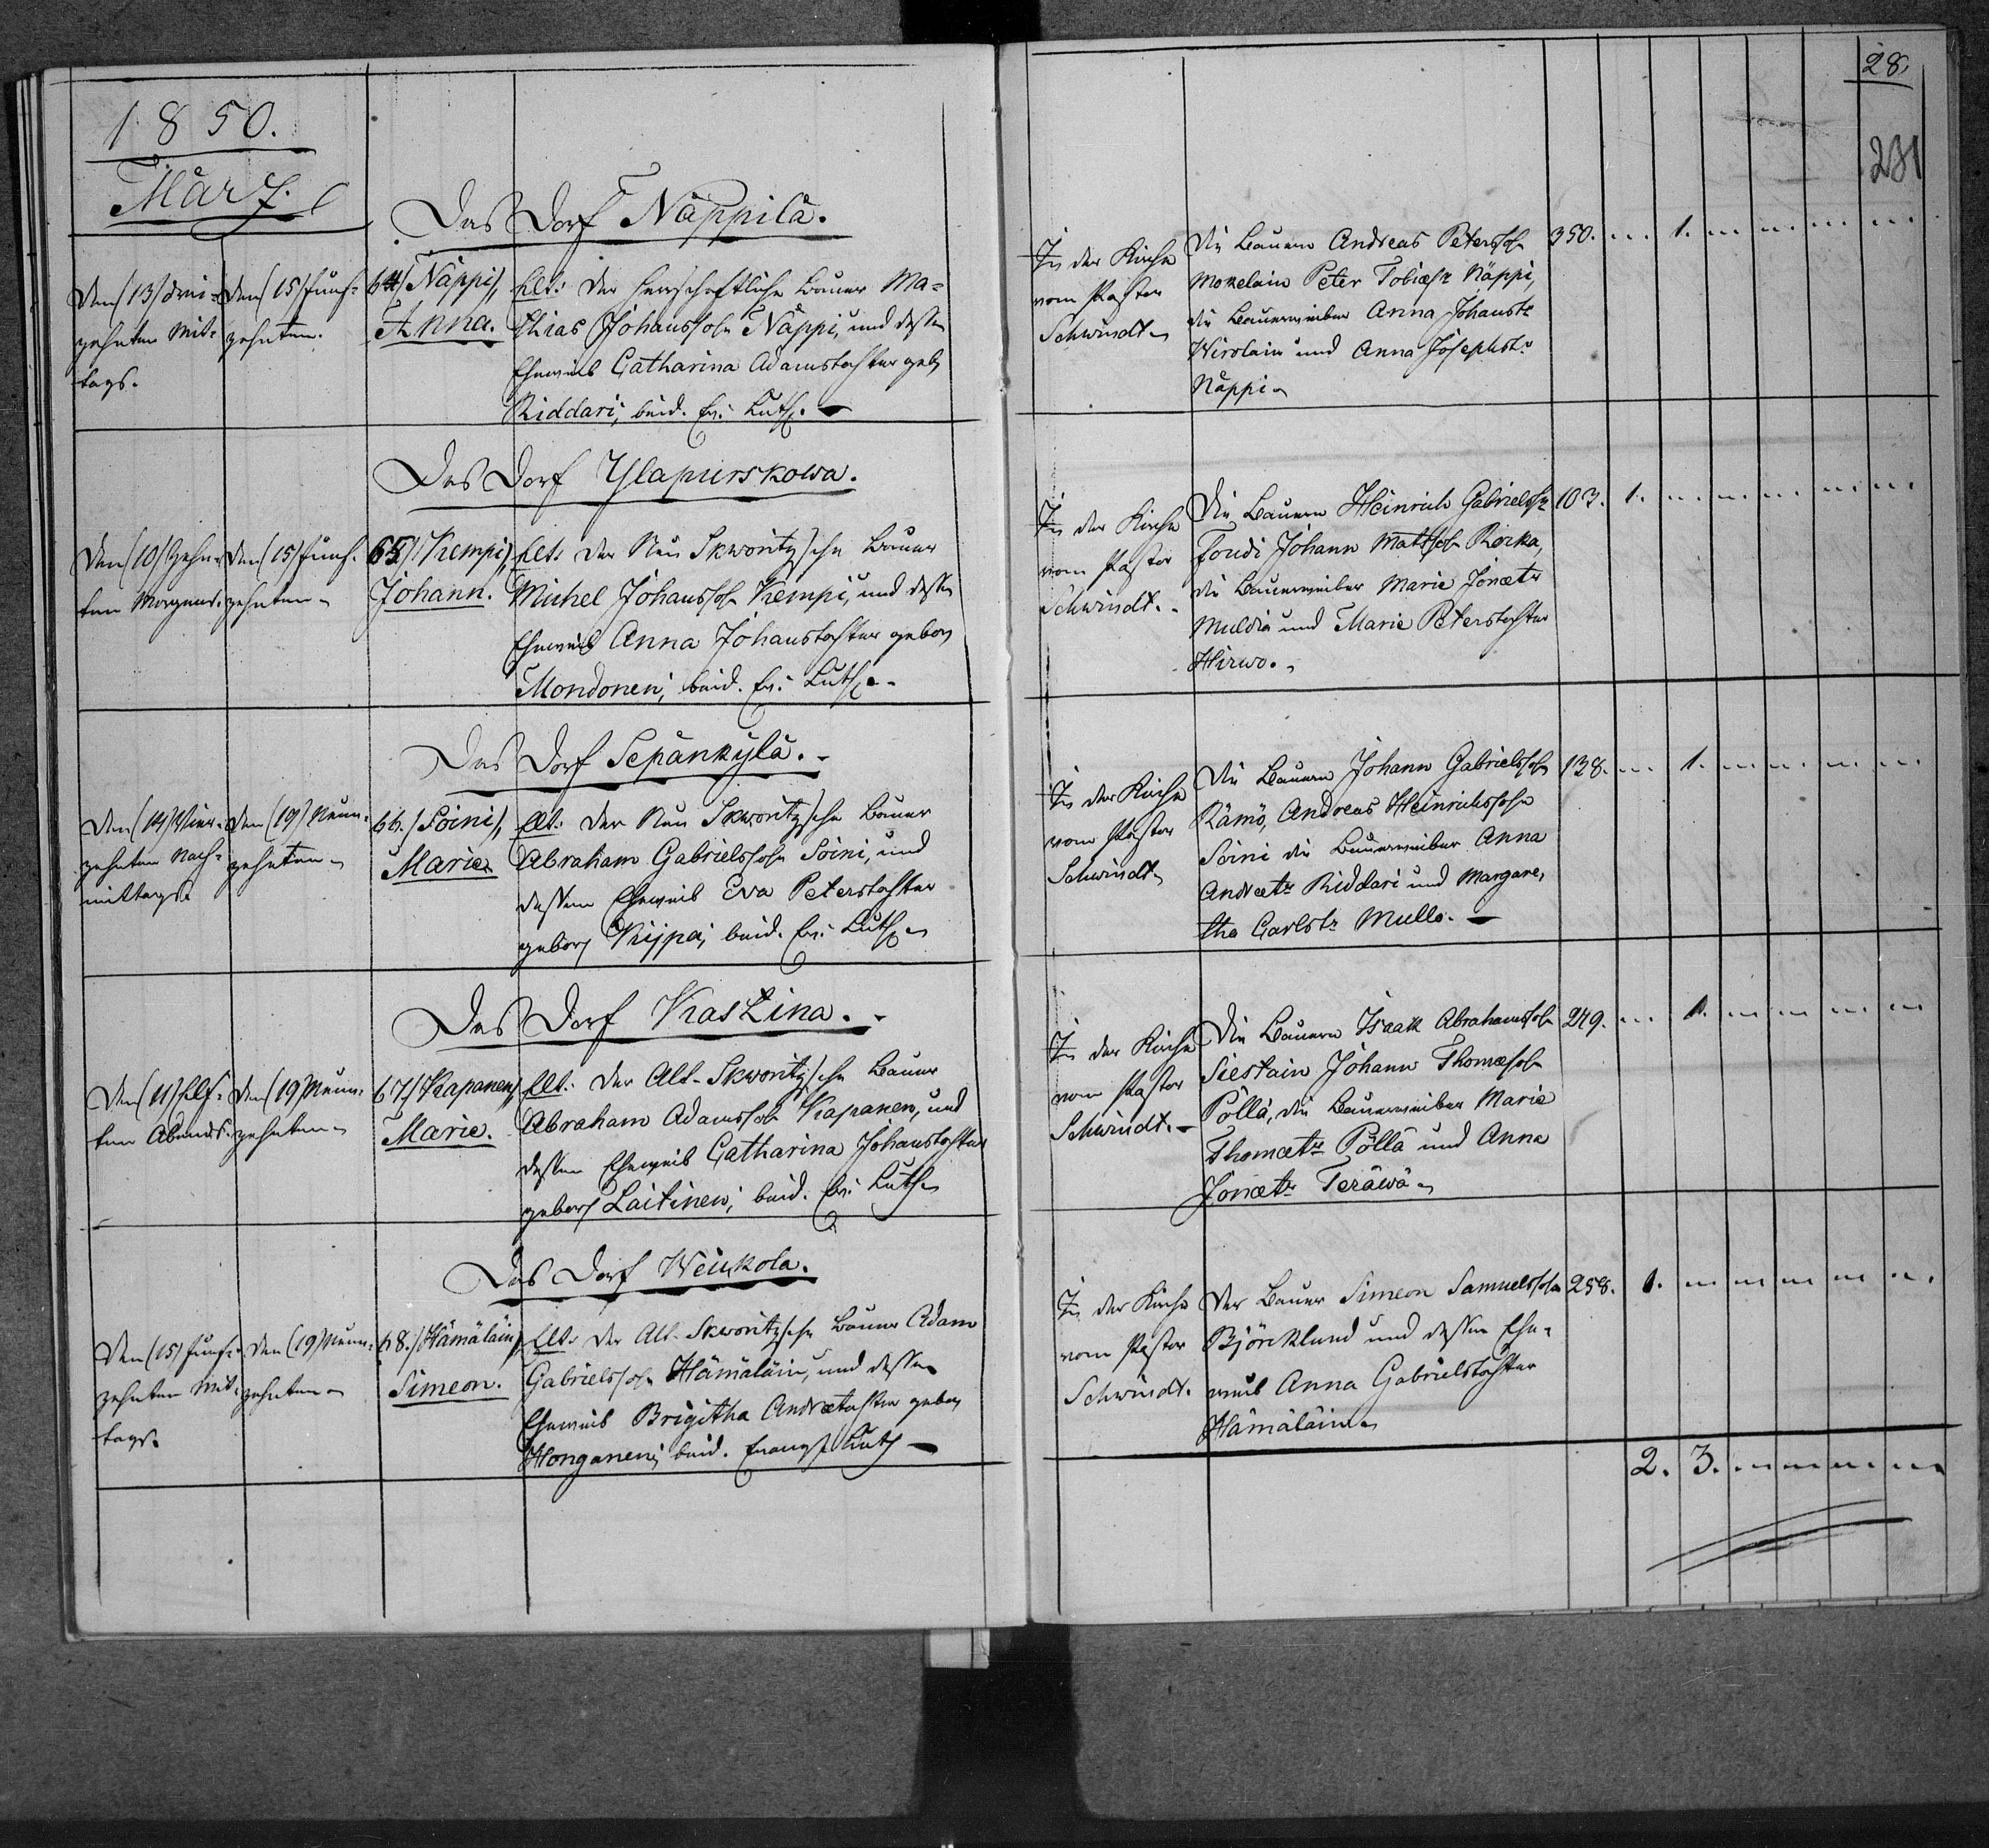 1850.
März.
Das Dorf Näppilä.
Den (13) drei-
zehnten Mit-
tags.
Den (15) fünf-
zehnten.
64./ Näppi/,
Anna.
Elt: der herrschaftliche Bauer Ma-
thias Johanssohn Näppi, und dessen
Eheweib Catharina Adamstochter geb
Riddari, beid. Ev: Luth.
Das Dorf Ylapurskowa.
Den (10) Zehn-
ten Morgens.
Den (15) fünf-
zehnten
65./ Kempi/,
Johann.
Elt: der Neu Skworitzsche Bauer
Michel Johanssohn Kempi, und dessen
Eheweib Anna Johanstochter gebor
Mondonen, beid. Ev: Luth.
Das Dorf Sepänkylä.
Den (14) Vier-
zehnten Nach-
mittags
Den (19) Neun-
zehnten
66./ Soini/,
Marie
Elt: der Neu Skworitzsche Bauer
Abraham Gabrielssohn Soini, und
dessen Eheweib Eva Peterstochter
gebor Kijpa, beid. Ev: Luth
Das Dorf Kaskina.
Den (11) Elf-
ten Abends.
Den (19) Neun-
zehnten
67./ Kapanen/
Marie.
Elt: der Alt-Skworitzsche Bauer
Abraham Adamssohn Kapanen, und
dessen Eheweib Catharina Johanstochter
gebor Laitinen, beid. Ev: Luth
Das Dorf Weikkola.
Den (15) fünf-
zehnten Mit-
tags.
Den (19) Neun-
zehnten
68./ Hämäläin/
Simeon.
Elt: der Alt-Skworitzsche Bauer Adam
Gabrielssohn Hämäläin, und dessen
Eheweib Brigitha Andreætochter gebor
Honganen, beid. Evang. Luth
28.
231
In der Kirche
vom Pastor
Schwindt
Die Bauern Andreas Peterssohn
Mokelain Peter Tobiæsn Näppi,
die Bauerweiber Anna Johanstr
Wirolain und Anna Josephstr
Näppi
350. 1.
In der Kirche
vom Pastor
Schwindt.
Die Bauern Heinrich Gabrielssn
Foudi Johann Matssohn Rocka,
die Bauerweiber Marie Jonætr
Muldia und Marie Peterstochter
Hirwo.
103. 1.
In der Kirche
vom Pastor
Schwindt
Die Bauern Johann Gabrielssohn
Rämö, Andreas Heinrichssohn
Soini die Bauerweiber Anna
Andreætr Riddari und Margare-
tha Carlstr Mullo.
138. 1.
In der Kirche
vom Pastor
Schwindt.
Die Bauern Isaak Abrahamssohn
Siestain Johann Thomæsohn
Pöllä, die Bauerweiber Marie
Thomætr Pöllä und Anna
Jonætr Teräwä
249. 1.
In der Kirche
vom Pastor
Schwindt.
Der Bauer Simeon Samuelssohn
Björcklund und dessen Ehe-
weib Anna Gabrielstochter
Hämäläin
258. 1.
2. 3.